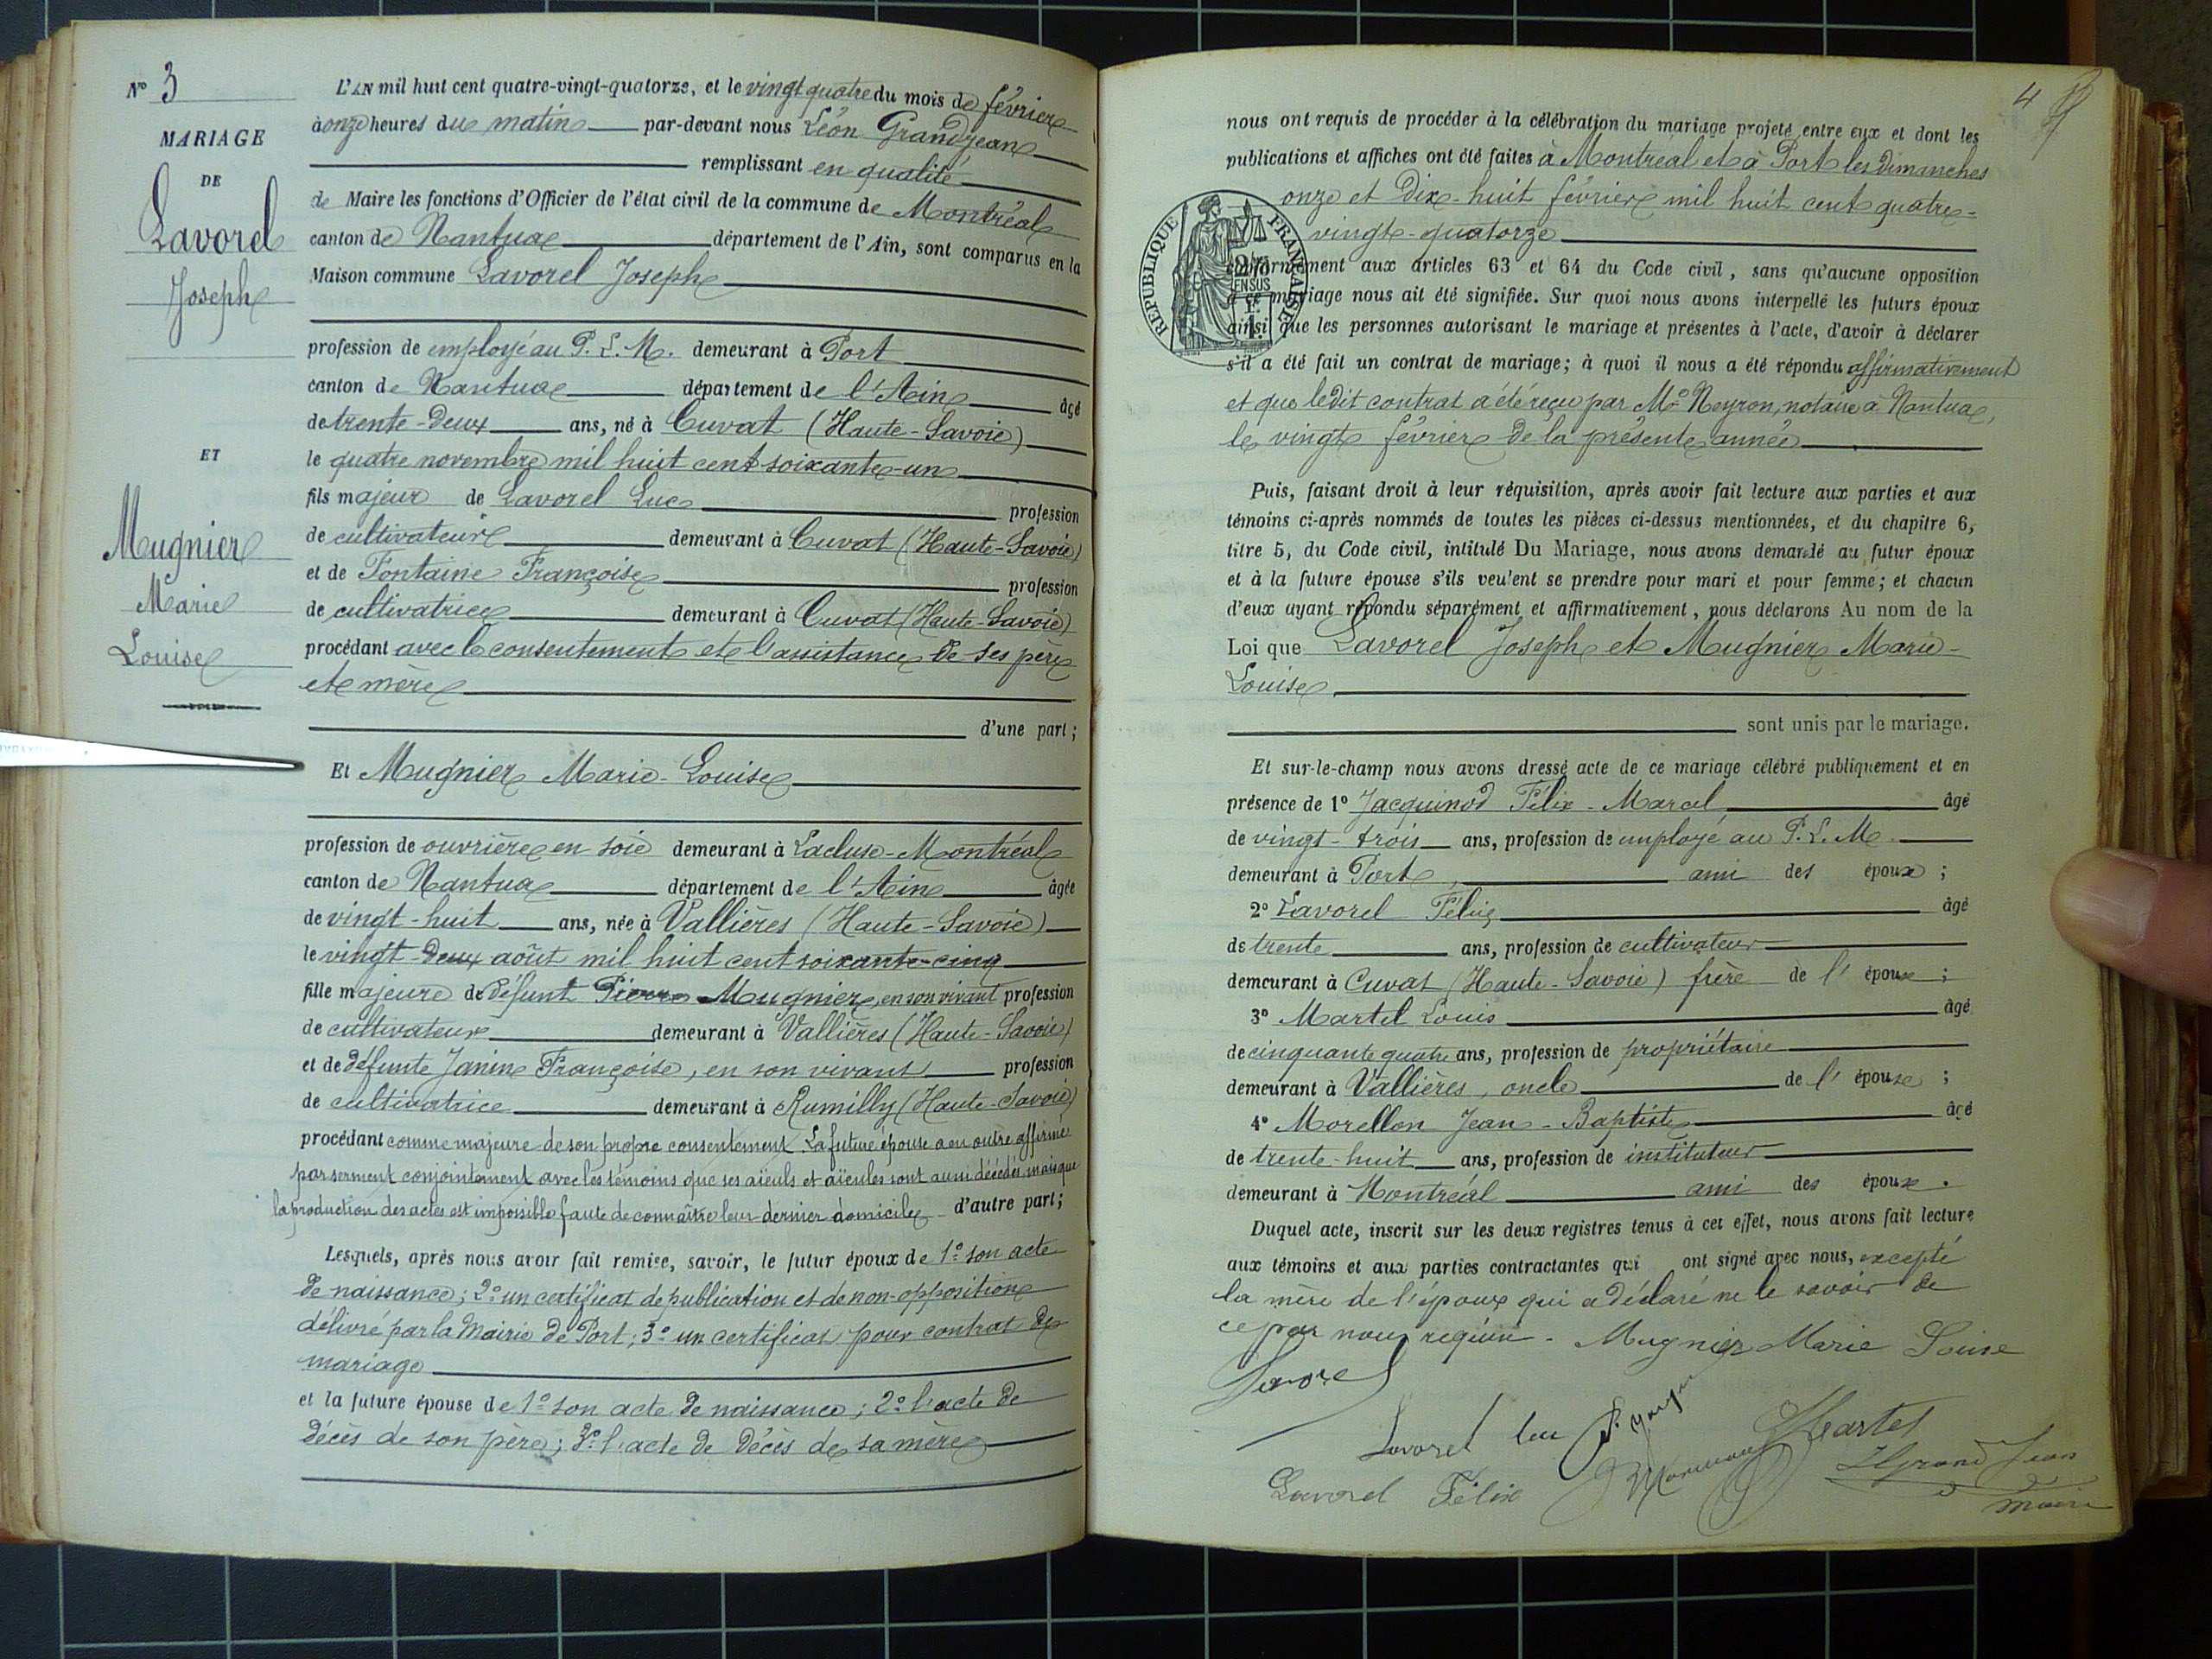 N° 3
MARIAGE
DE
Lavorel
Joseph
ET
Mugnier
Marie
Louise
L'AN mil huit cent quatre-vingt-quatorze, et le vingt quatre du mois de février
à onze heures du matin par-devant nous Léon Grandjean
remplissant en qualité
de Maire les fonctions d'Officier de l'état civil de la commune de Montréal
canton de Nantua département de l'Ain, sont comparus en la
Maison commune Lavorel Joseph
profession de employé au P. L. M. demeurant à Port
canton de Nantua département de l'Ain âgé
de trente-deux ans, né à Cuvat (Haute-Savoie)
le quatre novembre mil huit cent soixante-un
fils majeur de Lavorel Luc profession
de cultivateur demeurant à Cuvat (Haute-Savoie)
et de Fontaine Françoise profession
de cultivatrice demeurant à Cuvat (Haute-Savoie)
procédant avec le consentement et l'assistance de ses père
et mère
d'une part ;
Et Mugnier Marie-Louise
profession de ouvrière en soie demeurant à Lacluse-Montréal
canton de Nantua département de l'Ain âgée
de vingt-huit ans, née à Vallières (Haute-Savoie)
le vingt-deux août mil huit cent soixante-cinq
fille majeure de défunt Pierre Mugnier, en son vivant profession
de cultivateur demeurant à Vallières (Haute-Savoie)
et de défunte Janin Françoise, en son vivant profession
de cultivatrice demeurant à Rumilly (Haute-Savoie)
procédant comme majeure de son propre consentement. La future épouse a en outre affirmé
par serment conjointement avec les témoins que ses aïeuls et aïeules sont aussi décédés mais que
la production des actes est impossible faute de connaître leur dernier domicile d'autre part ;
Lesquels, après nous avoir fait remise, savoir, le futur époux de 1° son acte
de naissance ; 2° un certificat de publication et de non-opposition
délivré par la Mairie de Port ; 3° un certificat pour contrat de
mariage
et la future épouse de 1° son acte de naissance ; 2° l'acte de
décès de son père ; 3° l'acte de décès de sa mère
4
nous ont requis de procéder à la célébration du mariage projeté entre eux et dont les
publications et affiches ont été faites à Montréal et à Port les dimanches
onze et dix-huit février mil huit cent quatre-
vingt-quatorze
REPUBLIQUE FRANÇAISE
conformément aux articles 63 et 64 du Code civil, sans qu'aucune opposition
à ce mariage nous ait été signifiée. Sur quoi nous avons interpellé les futurs époux
ainsi que les personnes autorisant le mariage et présentes à l'acte, d'avoir à déclarer
s'il a été fait un contrat de mariage ; à quoi il nous a été répondu affirmativement
et que ledit contrat a été reçu par Me Neyron, notaire à Nantua,
le vingt février de la présente année
Puis, faisant droit à leur réquisition, après avoir fait lecture aux parties et aux
témoins ci-après nommés de toutes les pièces ci-dessus mentionnées, et du chapitre 6,
titre 5, du Code civil, intitulé Du Mariage, nous avons demandé au futur époux
et à la future épouse s'ils veulent se prendre pour mari et pour femme ; et chacun
d'eux ayant répondu séparément et affirmativement, nous déclarons Au nom de la
Loi que Lavorel Joseph et Mugnier Marie-
Louise
sont unis par le mariage.
Et sur-le-champ nous avons dressé acte de ce mariage célébré publiquement et en
présence de 1° Jacquinod Félix-Marcel âgé
de vingt-trois ans, profession de employé au P. L. M.
demeurant à Port, ami des époux ;
2° Lavorel Félix âgé
de trente ans, profession de cultivateur
demeurant à Cuvat (Haute-Savoie) frère de l'époux ;
3° Martel Louis âgé
de cinquante quatre ans, profession de propriétaire
demeurant à Vallières, oncle de l'épouse ;
4° Morellon Jean-Baptiste âgé
de trente-huit ans, profession de instituteur
demeurant à Montréal ami des époux.
Duquel acte, inscrit sur les deux registres tenus à cet effet, nous avons fait lecture
aux témoins et aux parties contractantes qui ont signé avec nous, excepté
la mère de l'époux qui a déclaré ne le savoir de
ce par nous requise. Mugnier Marie Louise
Lavorel
Lavorel Luc
Martel
Lavorel Félix
LGrandJean
Maire